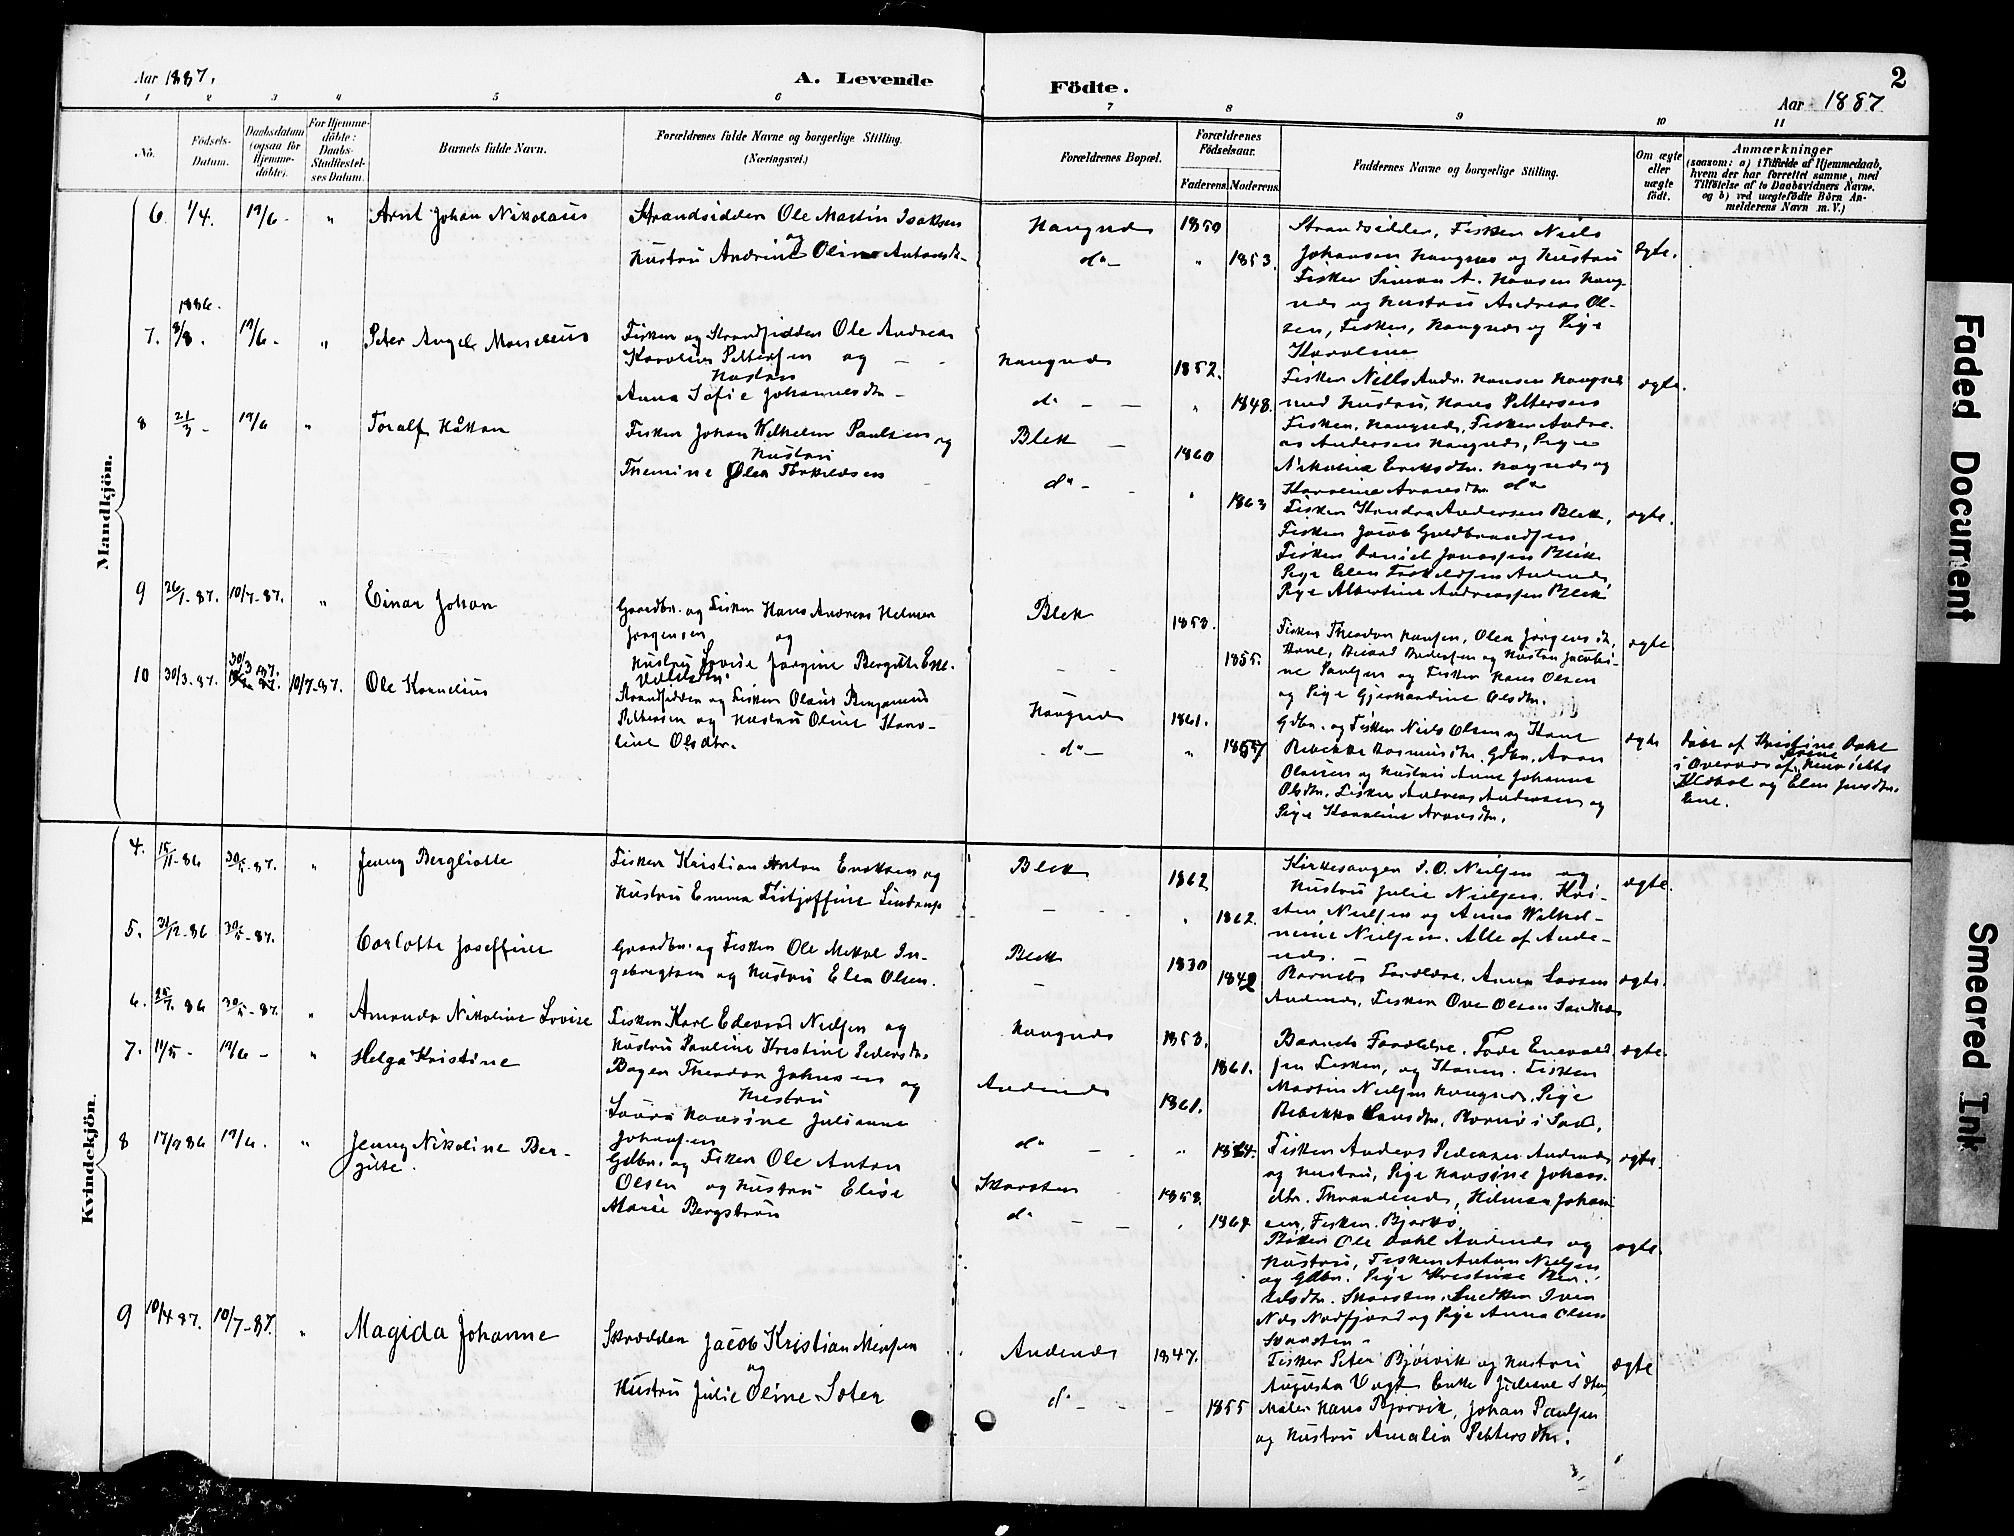 Aar 1887.
A. Levende
Födte.
Aar 1887
2
1 2 3 4 5 6 7 8 9 10 11
No.
Födsels-
Datum.
Daabsdatum
(ogsaa for
Hjemme-
döbte).
For Hjemme-
döbte:
Daabs-
Stadfæstel-
ses Datum.
Barnets fulde Navn.
Forældrenes fulde Navne og borgerlige Stilling.
(Næringsvei.)
Forældrenes Bopæl.
Forældrenes
Födselsaar.
Faderens. Moderens.
Faddernes Navne og borgerlige Stilling.
Om ægte
eller
uægte
födt.
Anmærkninger
(saasom: a) i Tilfælde af Hjemmedaab,
hvem der har forrettet samme, med
Tilföielse af to Daabsvidners Navne.
og b) ved uægtefödte Börn An-
melderens Navn m. V.)
Mandkjön.
6. 1/4. 19/6 - " Arnt Johan Nikolaus
Strandsidder Ole Martin Isaksen
og
Hustru Andrine Oline Antonsdtr.
Haugnæs 1850
do - " 1853.
Strandsidder, Fisker Niels
Johansen Haugnæs og Hustru
Fisker Simon A. Hansen Haug
næs og Hustru Andreas Ol-
sen, Fisker, Haugnæs og Pige
Karoline
ægte.
1886.
7. 8/8. 19/6 - " Peter Angel Marselius
Fisker og Strandsidder Ole Andreas
Karolius Pettersen og
Hustru
Anna Sofie Johannesdtr -
Haugnæs 1852.
do - - " 1848.
Fisker Niels Andr. Hansen Haugnæs
med Hustru, Hans Pettersen
Fisker, Haugnæs, Fisker Andre-
as Andersen Haugnæs, Pige
Nikoline Eriksdtr. Haugnæs og
Karoline Aronsdtr. do
ægte.
8 21/3 - 19/6 " Toralf Håkon
Fisker Johan Wilhelm Paulsen og
Hustru
Themine Olea Torkildsen
Blek - 1860
do - - " 1863
Fisker Andersen Blek,
Fisker Jacob Guldbrandsen
Fisker Daniel Jonassen Blek
Pige Elen Torkildsen Andenæs,
Pige Albertine Andreassen Blek
ægte.
9 26/1-87. 10/7-87. " Einar Johan
Gaardbr. og Fisker Hans Andreas Helmer
Jørgensen og
Hustru Lovise Jørgine Bergitte Ene-
valdsen.
Blek 1858.
- - 1855.
Fisker Theodor Hansen, Olea Jørgensdtr.
Kone, Pedersen og Hustru Jacobi-
ne Paulsen og Fisker Hans Olsen
og Pige Gjerhardine Olsdtr.
ægte.
10 30/3-87. 30/3 1887. 10/7-87. Ole Kornelius
Strandsidder og Fisker Olaus Benjamins
Pettersen og Hustru Oline Karo-
line Olsdtr.
Haugnæs 1861.
- do - " 1857
Gdbr. og Fisker Niels Olsen og Kone
Rebekka Rasmusdtr. Gdbr. Aron
Olausen og Hustru Anne Johanne
Olsdtr. Fisker Andreas Andersen og
Pige Karoline Aronsdtr.
ægte
Døbt af Kristine Dahl
i Overvær af Henriette
og Elen Jensdtr.
Ene.
Kvindekjön.
4. 15/11-86 30/5-87. " Jenny Bergliotte
Fisker Kristian Anton Eriksen og
Hustru Emma Fritjoffine Lindrup
Blek 1862
- " 1862.
Kirkesanger J. O. Nielsen og
Hustru Julie Nielsen. Kri-
sten Nielsen og Anna Wilhel-
mine Nielsen. Alle af Ande-
næs.
ægte.
5. 31/12-86 30/5-87. Carlotte Josefine
Gaardbr. og Fisker Ole Mekal In-
gebrigtsen og Hustru Elen Olsen.
Blek 1830
- 1842
Barnets Forældre. Anna Larsen
Andenæs, Fisker Ove Olsen
ægte.
6. 25/7 86 30/5-87. " Amanda Nikoline Lovise
Fisker Karl Edevard Nielsen og
Hustru Pauline Kristine Pedersdtr.
Haugnæs 1853.
1861.
Barnets Forældre. Tode Enevald-
sen Fisker, og Konen. Fisker
Martin Nielsen Haugnæs, Pige
Rebekka Larsdtr.
ægte.
7. 11/5 - 19/6 - " Helga Kristine
Bager Theodor Johnsen og
Hustru
Laura Hansine Julianne
Johansen
Andenæs 1861.
do - - " 1864.
Fisker Anders Pedersen Andenæs
og Hustru, Pige Hansine Johans-
dtr. Helmer Johan
sen, Fisker. Bjørkø.
ægte.
8 17/9 86 19/6. " Jenny Nikoline Ber-
gitte.
Gdbr. og Fisker Ole Anton
Olsen og Hustru Elise
Marie Bergstrøm
Skarsten 1858.
do - - " 1864
Bøkker Ole Dahl Andenæs og
Hustru, Fisker Anton Nielsen
og Gdbr. Pige Kristine Ber-
telsdtr. Skarsten. Snedker Iver
Nils Nordfjord og Pige Anna Olsen
Skarsten.
ægte.
9 10/4 87. 10/7-87. " Magida Johanne
Skrædder Jacob Kristian
og
Hustru Julie Oline Sæter
Andenæs 1847.
do - - - 1855
Fisker Peter Bjørvik og Hustru
Augusta Vogt Enke Juliane Sæter
Maler Hans Bjørvik, Johan Paulsen
og Hustru Amalia Pettersdtr.
ægte
Faded Document
Smeared Ink